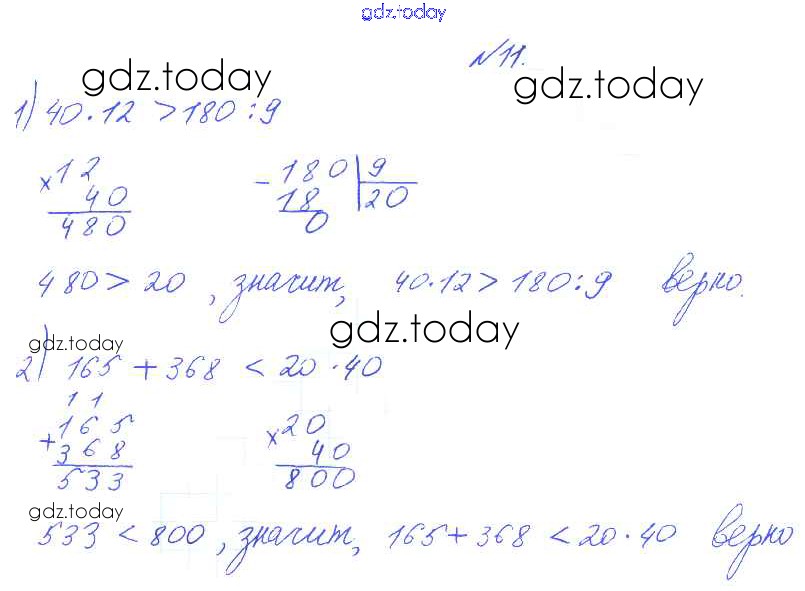 gdz.today
№11.
gdz.today gdz.today
1) 40·12 > 180:9
×12 -180|9
40 18 20
480 0
480 > 20, значит, 40·12 > 180:9 верно.
gdz.today gdz.today
2) 165 + 368 < 20·40
1 1
+165 ×20
368 40
533 800
gdz.today
533 < 800, значит, 165 + 368 < 20·40 верно